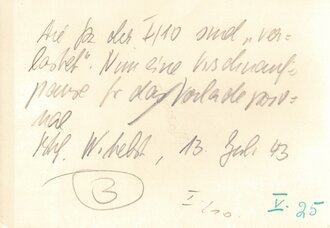 Die 
der I/10 sind „ver-
lastet“. Nun eine Verschnauf-
pause für das Verladeperso-
nal
Witebsk, 13. Juli 43
B
I./10.
V. 25